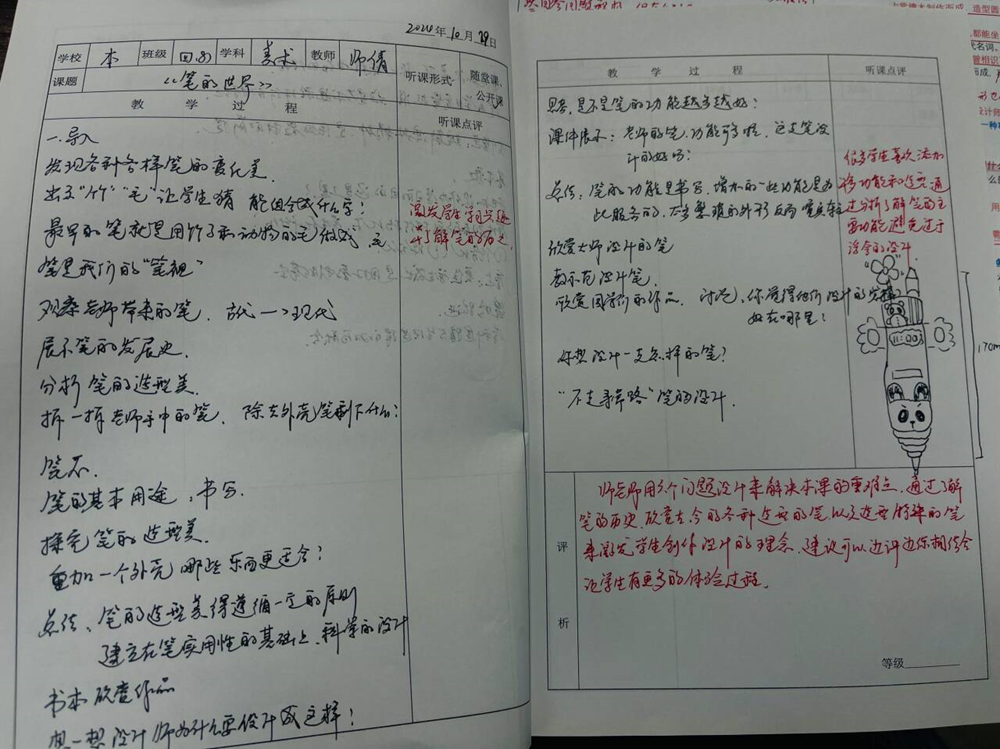 2024年10月29日
学校 本 班级 四(5) 学科 美术 教师 师倩 听课形式 随堂课、公开课
课题 《笔的世界》
教 学 过 程 听课点评
一.导入
发现各种各样笔的变化美.
出示"个""毛"让学生猜 能组合成什么字?
最早的笔就是用竹子和动物的毛做成,毛
笔是我们的"笔祖"
激发学生学习兴趣
并了解笔的历史
观察老师带来的笔. 古代—>现代
展示笔的发展史.
分析笔的造型美.
拆一拆老师手中的笔. 除去外壳笔剩下什么?
笔芯.
笔的基本用途:书写.
探究笔的造型美.
重加一个外壳 哪些东西更适合?
总结、笔的造型美得遵循一定的原则
建立在笔实用性的基础上、科学的设计
书本欣赏作品
想一想设计师为什么要设计成这样?
教 学 过 程 听课点评
思考,是不是笔的功能越多越好?
课件展示:老师的笔,功能可多啦. 这支笔设
计的好吗?
总结:笔的功能是书写.增加的一些功能是为
此服务的.
欣赏大师设计的笔
教师示范设计笔.
欣赏同龄的作品. 讨论,你觉得他们设计的
好在哪里?
你想设计一支怎样的笔?
"不走寻常路"笔的设计.
很多学生喜欢添加
多功能和造型 通
过分析了解笔的主
要功能避免过于
浮夸的设计
11:03
170m
评析
师老师用多个问题设计来解决本课的重难点.通过了解
笔的历史.欣赏古今的各种造型的笔以及造型特殊的笔
来激发学生创作设计的理念.建议可以边评边
让学生有更多的体验过程。
等级